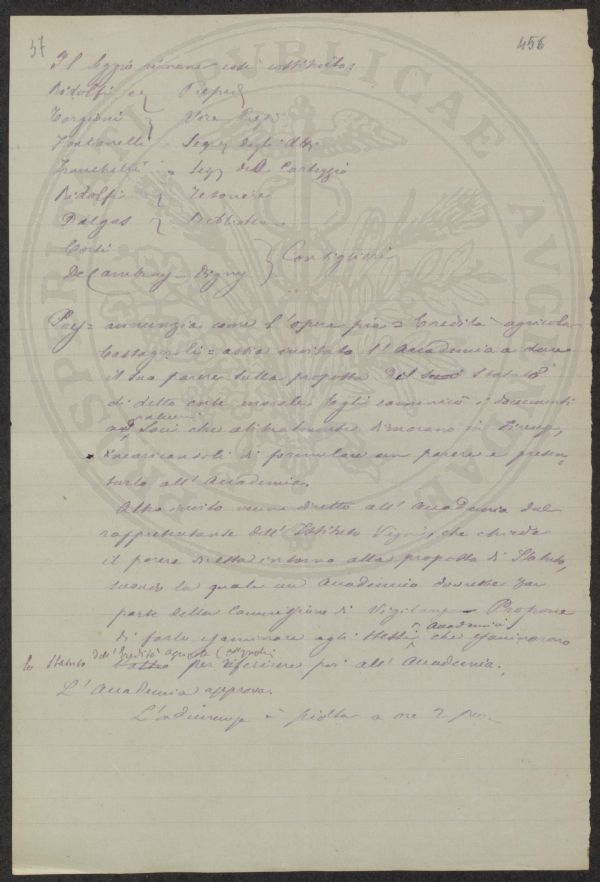 37
456
Il Seggio rimane così costituito:
Ridolfi } Presid.
Targioni } Vice Presid.
Fontanelli = Segr. degli Atti
Franchetti = Seg. del Carteggio
Ridolfi } Tesoriere
Dalgas } Bibliotec.
Corsi
De Cambray-Digny } Consiglieri
Pres = annunzia come l'opera pia = Credito agricolo
Castagnoli = abbia invitato l'Accademia a dare
il suo parere sulla proposta di Statuto
di detto ente morale. Egli comunicò i documenti
ad alcuni Soci che abitualmente dimorano in Firenze,
incaricandoli di formulare un parere e presen-
tarlo all'Accademia.
Altro invito venne diretto all'Accademia dal
rappresentante dell'Istituto Vegni, che chiede
il parere di essa intorno alla proposta di Statuto,
secondo la quale un Accademico dovrebbe far
parte della Commissione di Vigilanza = Propone
di farlo esaminare agli stessi Accademici che esaminarono
lo Statuto del Credito agricolo Castagnoli per riferirne poi all'Accademia.
L'Accademia approva.
L'adunanza è sciolta a ore 2 pom.